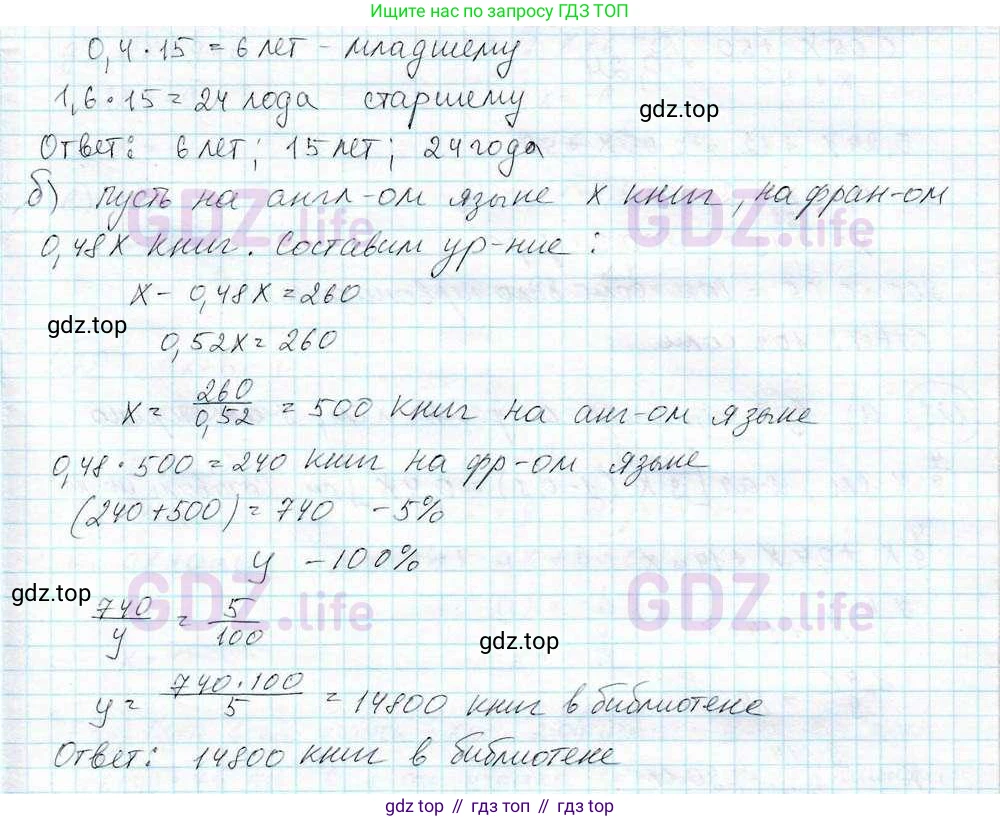 Ищите нас по запросу ГДЗ ТОП
0,4 · 15 = 6 лет - младшему
1,6 · 15 = 24 года старшему
gdz.top
Ответ: 6 лет; 15 лет; 24 года
б) пусть на англ-ом языке x книг, на фран-ом
GDZ.life GDZ.life
0,48x книг. Составим ур-ние:
x - 0,48x = 260
gdz.top
0,52x = 260
x = 260/0,52 = 500 книг на анг-ом языке
0,48 · 500 = 240 книг на фр-ом языке
(240 + 500) = 740 - 5%
y - 100%
GDZ.life GDZ.life
gdz.top
740/y = 5/100
gdz.top
y = 740 · 100/5 = 14800 книг в библиотеке
Ответ: 14800 книг в библиотеке
gdz.top // гдз топ // gdz.top